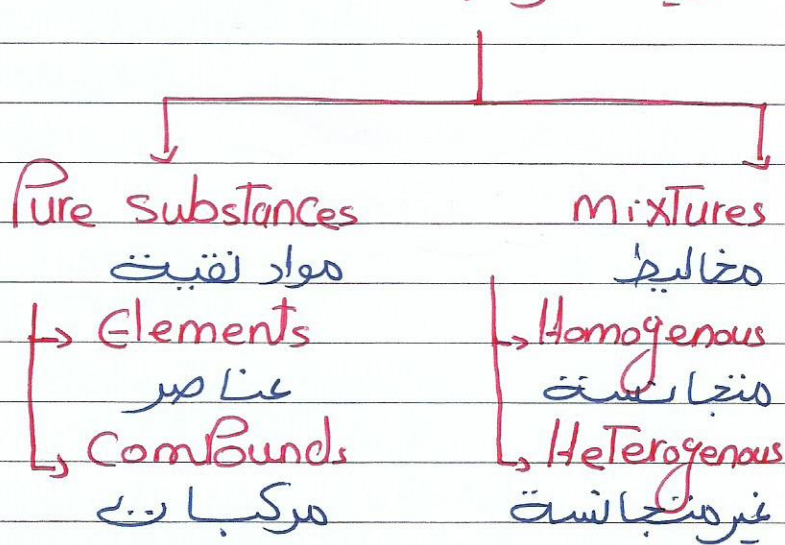 Pure substances
مواد نقية
Elements
عناصر
Compounds
مركبات
mixTures
مخاليط
Homogenous
متجانسة
HeTerogenous
غير متجانسة